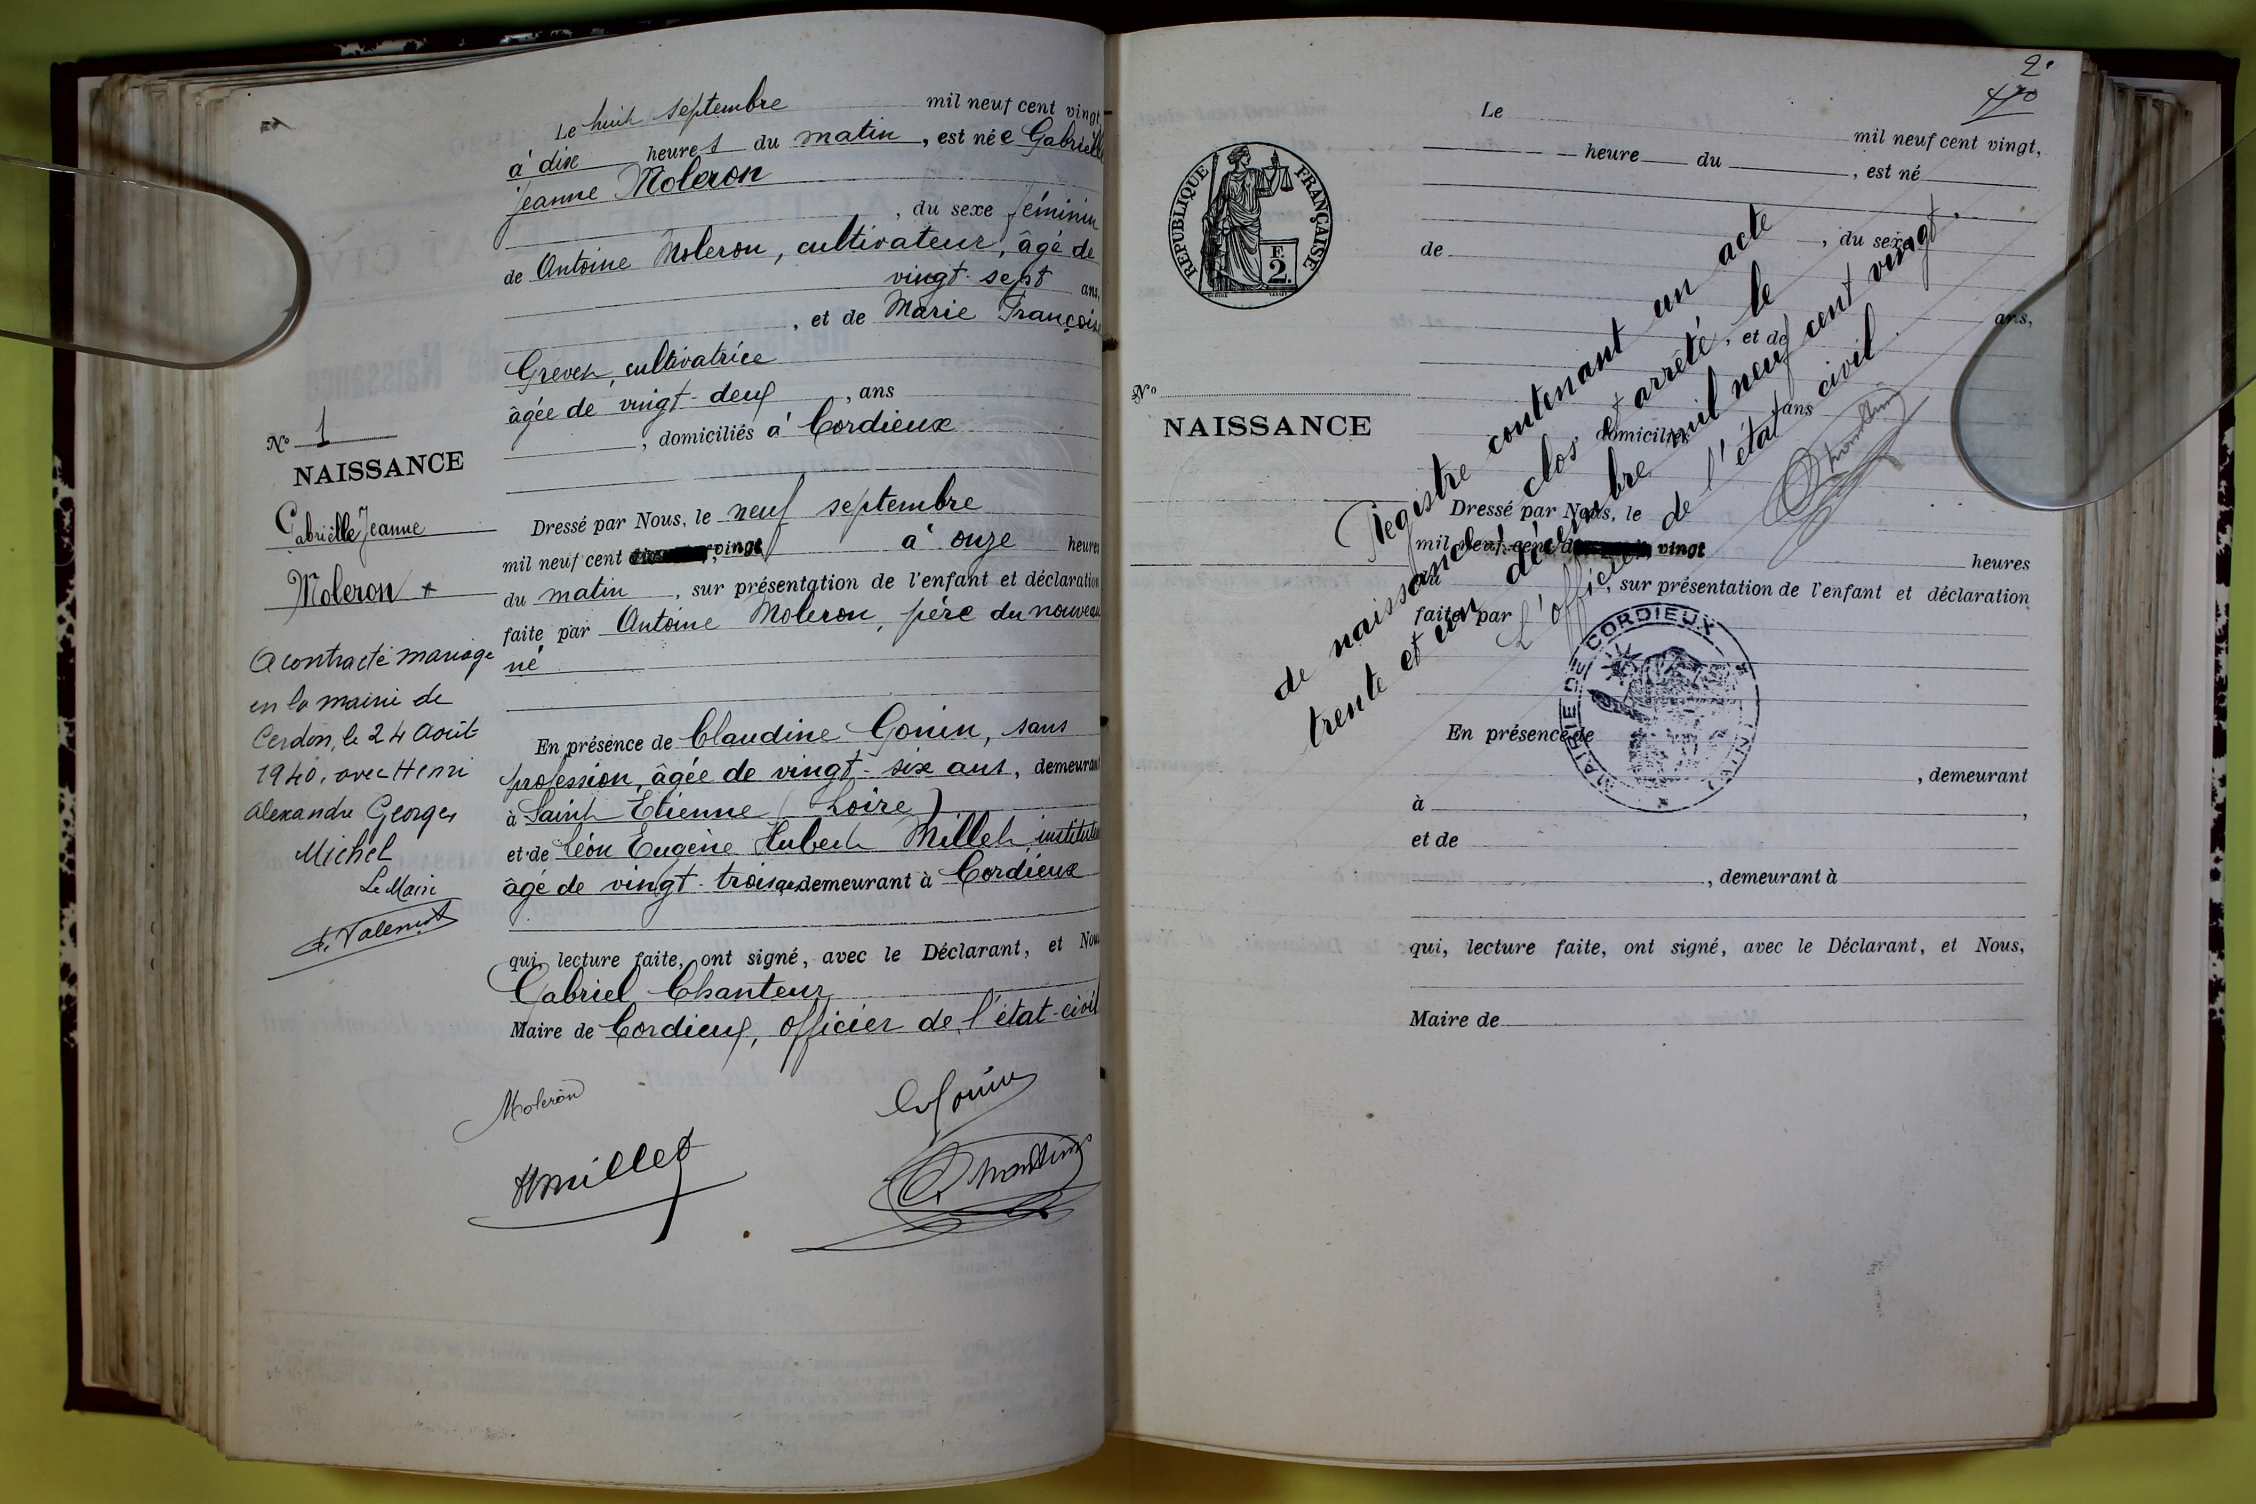 Le huit septembre mil neuf cent vingt,
à dix heures du matin, est née Gabrielle
Jeanne Moleron
, du sexe féminin
de Antoine Moleron, cultivateur, âgé de
vingt-sept ans,
, et de Marie Françoise
Grevet, cultivatrice
âgée de vingt-deux, ans
, domiciliés à Cordieux
N° 1
NAISSANCE
Gabrielle Jeanne
Moleron
A contracté mariage
en la mairie de
Cerdon, le 24 Août
1940, avec Henri
Alexandre Georges
Michel
Le Maire
Dressé par Nous, le neuf septembre
mil neuf cent vingt à onze heures
du matin, sur présentation de l'enfant et déclaration
faite par Antoine Moleron, père du nouveau
né
En présence de Claudine Gonin, sans
profession, âgée de vingt-six ans, demeurant
à Saint Etienne (Loire)
et de Léon Eugène Hubert Millet instituteur
âgé de vingt-trois ans demeurant à Cordieux
qui, lecture faite, ont signé, avec le Déclarant, et Nous
Gabriel Chanteur
Maire de Cordieux, officier de l'état-civil
Moleron
Gonin
Hmillet
2
REPUBLIQUE FRANÇAISE
F.
2.
N°
NAISSANCE
Le mil neuf cent vingt,
heure du , est né
, du sexe
de
ans,
, et de
ans
domiciliés
Dressé par Nous, le
mil neuf cent vingt
heures
du , sur présentation de l'enfant et déclaration
faite par
En présence de
, demeurant
à ,
et de
, demeurant à
qui, lecture faite, ont signé, avec le Déclarant, et Nous,
Maire de
Registre contenant un acte
de naissance clos et arrêté, le
trente et un décembre mil neuf cent vingt.
L'officier de l'état civil
MAIRIE DE CORDIEUX